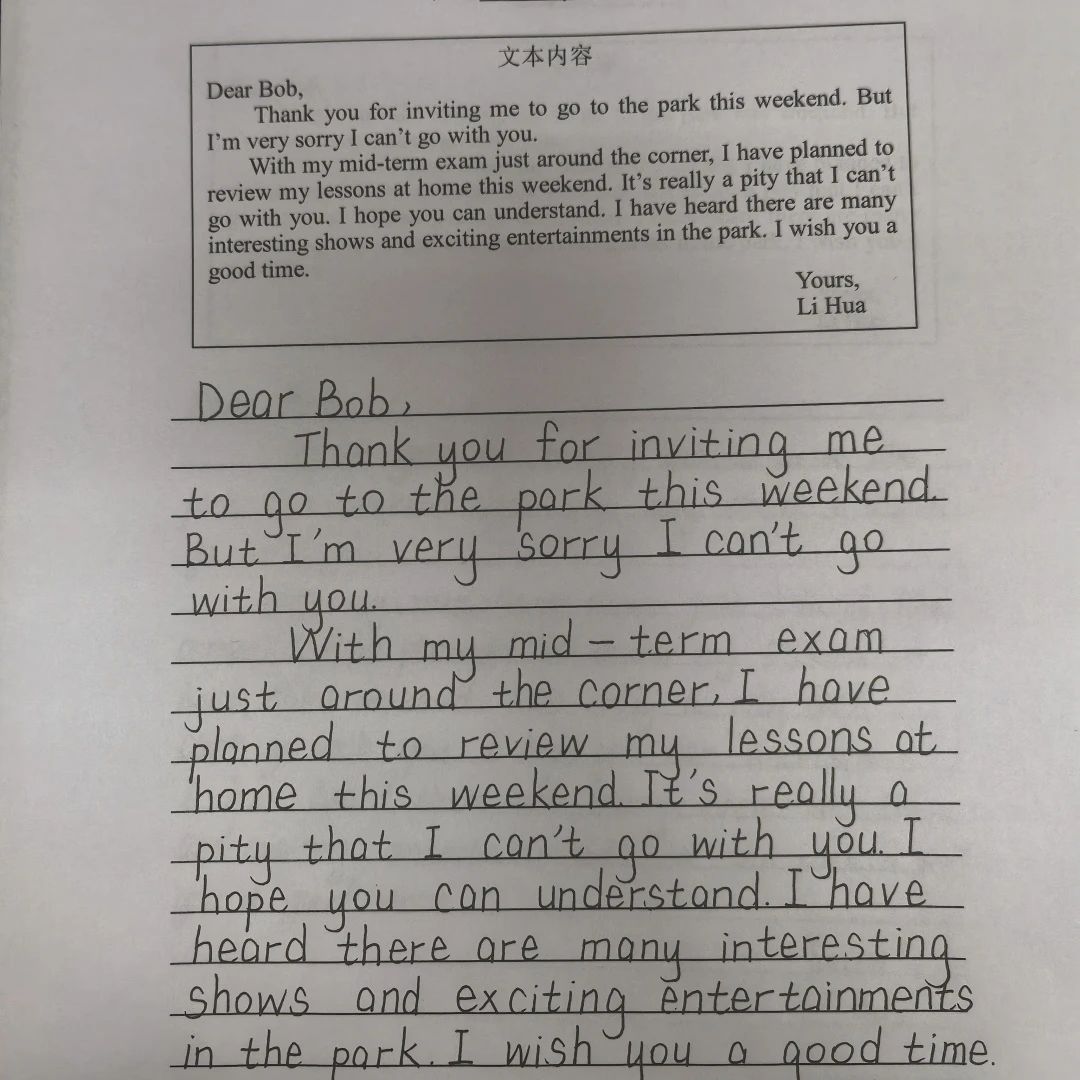 文本内容
Dear Bob,
Thank you for inviting me to go to the park this weekend. But
I'm very sorry I can't go with you.
With my mid-term exam just around the corner, I have planned to
review my lessons at home this weekend. It's really a pity that I can't
go with you. I hope you can understand. I have heard there are many
interesting shows and exciting entertainments in the park. I wish you a
good time.
Yours,
Li Hua
Dear Bob,
Thank you for inviting me
to go to the park this weekend.
But I'm very sorry I can't go
with you.
With my mid-term exam
just around the corner, I have
planned to review my lessons at
home this weekend. It's really a
pity that I can't go with you. I
hope you can understand. I have
heard there are many interesting
shows and exciting entertainments
in the park. I wish you a good time.